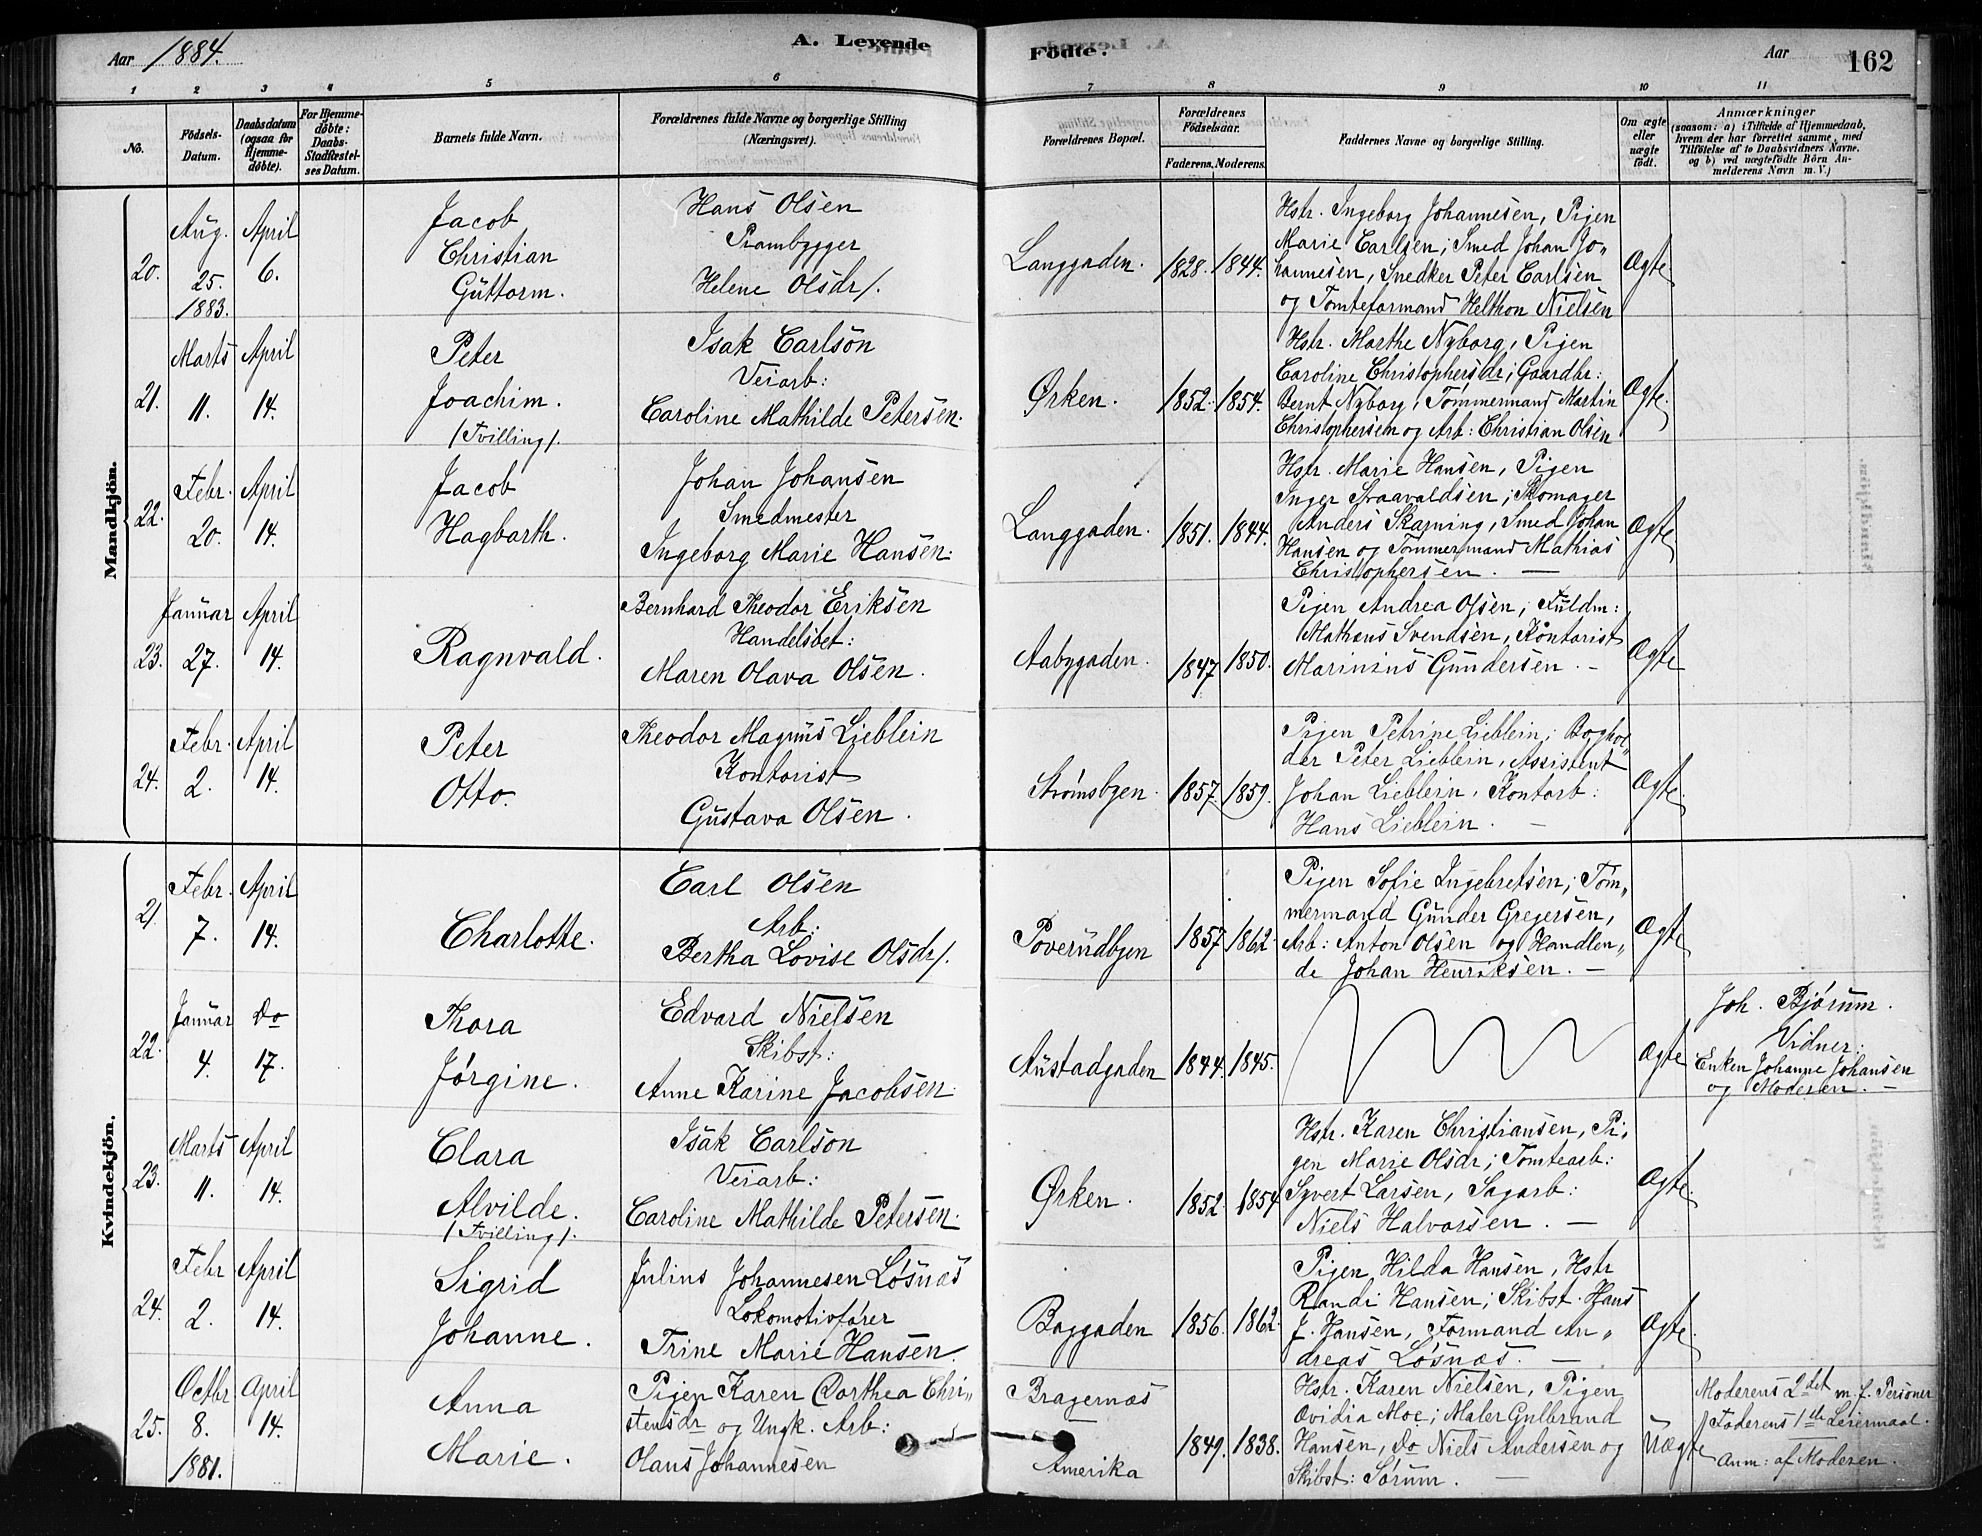 Aar 1884.
A. Levende
Födte.
Aar
162
1
2
3
4
5
6
7
8
9
10
11
No.
Födsels-
Datum.
Daabsdatum
(ogsaa for
Hjemme-
døbte).
For Hjemme-
døbte:
Daabs-
Stadfæstel-
ses Datum.
Barnets fulde Navn.
Forældrenes fulde Navne og borgerlige Stilling
(Næringsvei).
Forældrenes Bopæl.
Forældrenes
Födselsaar.
Faderens. Moderens.
Faddernes Navne og borgerlige Stilling.
Om ægte
eller
uægte
født.
Anmærkninger
(saasom: a) i Tilfælde af Hjemmedaab,
hvem der har forrettet samme, med
Tilföielse af to Daabsvidners Navne.
og b) ved uægtefödte Börn An-
melderens Navn m. V.)
Mandkjön.
20.
Aug.
25.
1883.
April
6.
Jacob
Christian
Guttorm.
Hans Olsen
Prambygger
Helene Olsdr/.
Langgaden.
1828.
1844.
Hstr. Ingeborg Johannesen, Pigen
Marie Carlsen; Smed Johan Jo-
hannesen, Snedker Peter Carlsen
og Tomteformand Helthon Nielsen
Ægte.
21.
Marts
11.
April
14.
Peter
Joachim.
/Tvilling/.
Isak Carlson
Veiarb:
Caroline Mathilde Petersen.
Ørken.
1852.
1854.
Hstr. Marthe Nyborg, Pigen
Caroline Christophersdr; Gaardbr:
Bernt Nyborg, Tømmermand Martin
Christophersen og Arb: Christian Olsen
Ægte.
22.
Febr.
20.
April
14.
Jacob
Hagbarth.
Johan Johansen
Smedmester
Ingeborg Marie Hansen.
Langgaden.
1851.
1844.
Hstr. Marie Hansen, Pigen
Inger Svaavaldsen; Skomager
Anders Skarning, Smed Johan
Hansen og Tømmermand Mathias
Christophersen. —
Ægte
23.
Januar
27.
April
14.
Ragnvald.
Bernhard Theodor Eriksen
Handelsbet:
Maren Olava Olsen.
Aabygaden.
1847
1850.
Pigen Andrea Olsen; Fuldm:
Matheus Svendsen, Kontorist
Marinius Gundersen. —
Ægte
24.
Febr.
2.
April
14.
Peter
Otto.
Theodor Magnus Lieblein
Kontorist
Gustava Olsen.
Strømsbyen.
1857.
1859.
Pigen Petrine Lieblein; Boghol-
der Peter Lieblein, Assistent
Johan Lieblein, Kontorb:
Hans Lieblein. —
Ægte.
Kvindekjön.
21.
Febr.
7.
April
14.
Charlotte.
Carl Olsen
Arb:
Bertha Lovise Olsdr/.
Poverudbyen
1857
1862.
Pigen Sofie Ingebretsen; Tøm-
mermand Gunder Gregersen,
Arb: Anton Olsen og Handlen-
de Johan Henriksen. —
Ægte
22.
Januar
4.
Do
17.
Thora
Jørgine.
Edvard Nielsen
Skibst:
Anne Karine Jacobsen.
Austadgaden
1844.
1845.
Ægte
Joh. Bjørum.
Vidner:
Enken Johanne Johansen
og Moderen. —
23.
Marts
11.
April
14.
Clara
Alvilde.
/Tvilling/.
Isak Carlson
Veiarb:
Caroline Mathilde Petersen.
Ørken.
1852.
1854
Hstr. Karen Christiansen, Pi-
gen Marie Olsdr; Tomtearb:
Syvert Larsen, Sagarb:
Niels Halvorsen. —
Ægte.
24.
Febr
2.
April
14.
Sigrid
Johanne.
Julius Johannesen Løsnæs
Lokomotivfører
Trine Marie Hansen.
Baggaden
1856.
1862.
Pigen Hilda Hansen, Hstr
Randi Hansen; Skibst. Hans
J. Hansen, Formand An-
dreas Løsnæs. —
Ægte.
25.
Octbr
8.
1881.
April
14.
Anna
Marie.
Pigen Karen Dorthea Chri-
stensdr og Ungk. Arb:
Olaus Johannesen
Bragernæs
Amerika
1849.
1838.
Hstr. Karen Nielsen, Pigen
Ovidia Moe; Maler Gulbrand
Hansen, Do Niels Andersen og
Skibst: Sørum. —
Uægte
Moderens 2det m. f. Personer
Faderens 1ste Leiermaal.
Anm: af Moderen.